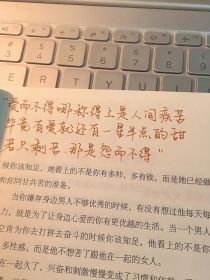 E R T Y U
"爱而不得哪称得上是人间疾苦
毕竟有爱就还有一星半点的甜
若只剩苦.那是怨而不得"
候你该知足,她看上的不是你有多帅,多有钱,而是她已经做
和你同甘共苦的准备。
当你嫌弃身边男人不够优秀的时候,有没有想过他每天每
力,就是为了让身边心爱的你有更优越的生活。当一个男人
空肯为你去打拼去奋斗的时候你该知足,他看上的不是你
多性感,而是他不想苦了跟他在一起的女人。
在一起久了,兴奋和刺激慢慢变成了习惯和